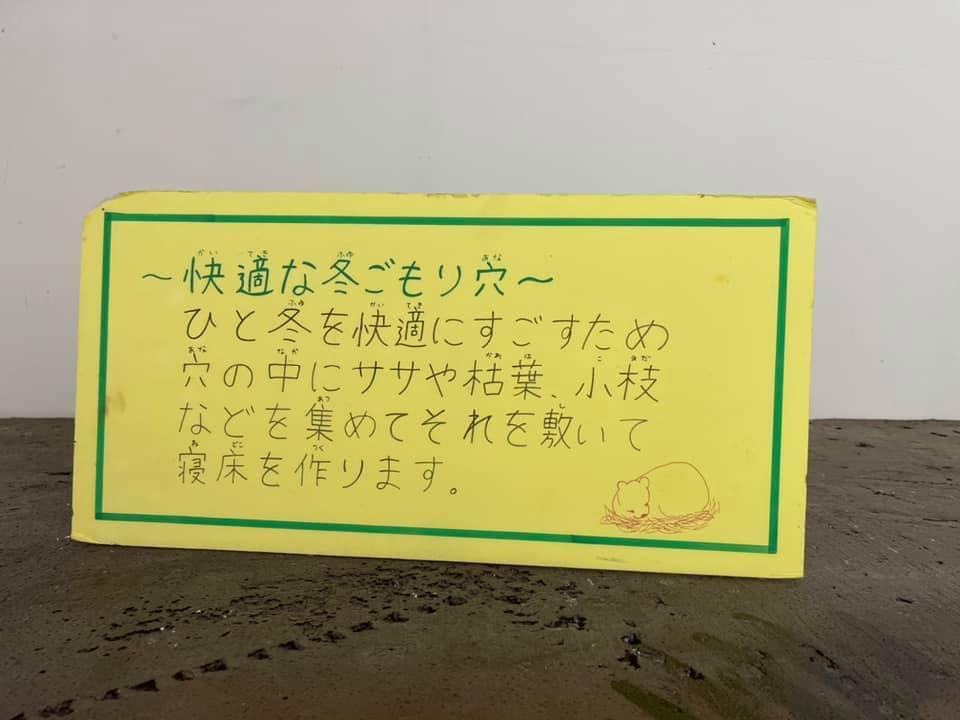 ～快適な冬ごもり穴～
ひと冬を快適にすごすため
穴の中にササや枯葉、小枝
などを集めてそれを敷いて
寝床を作ります。